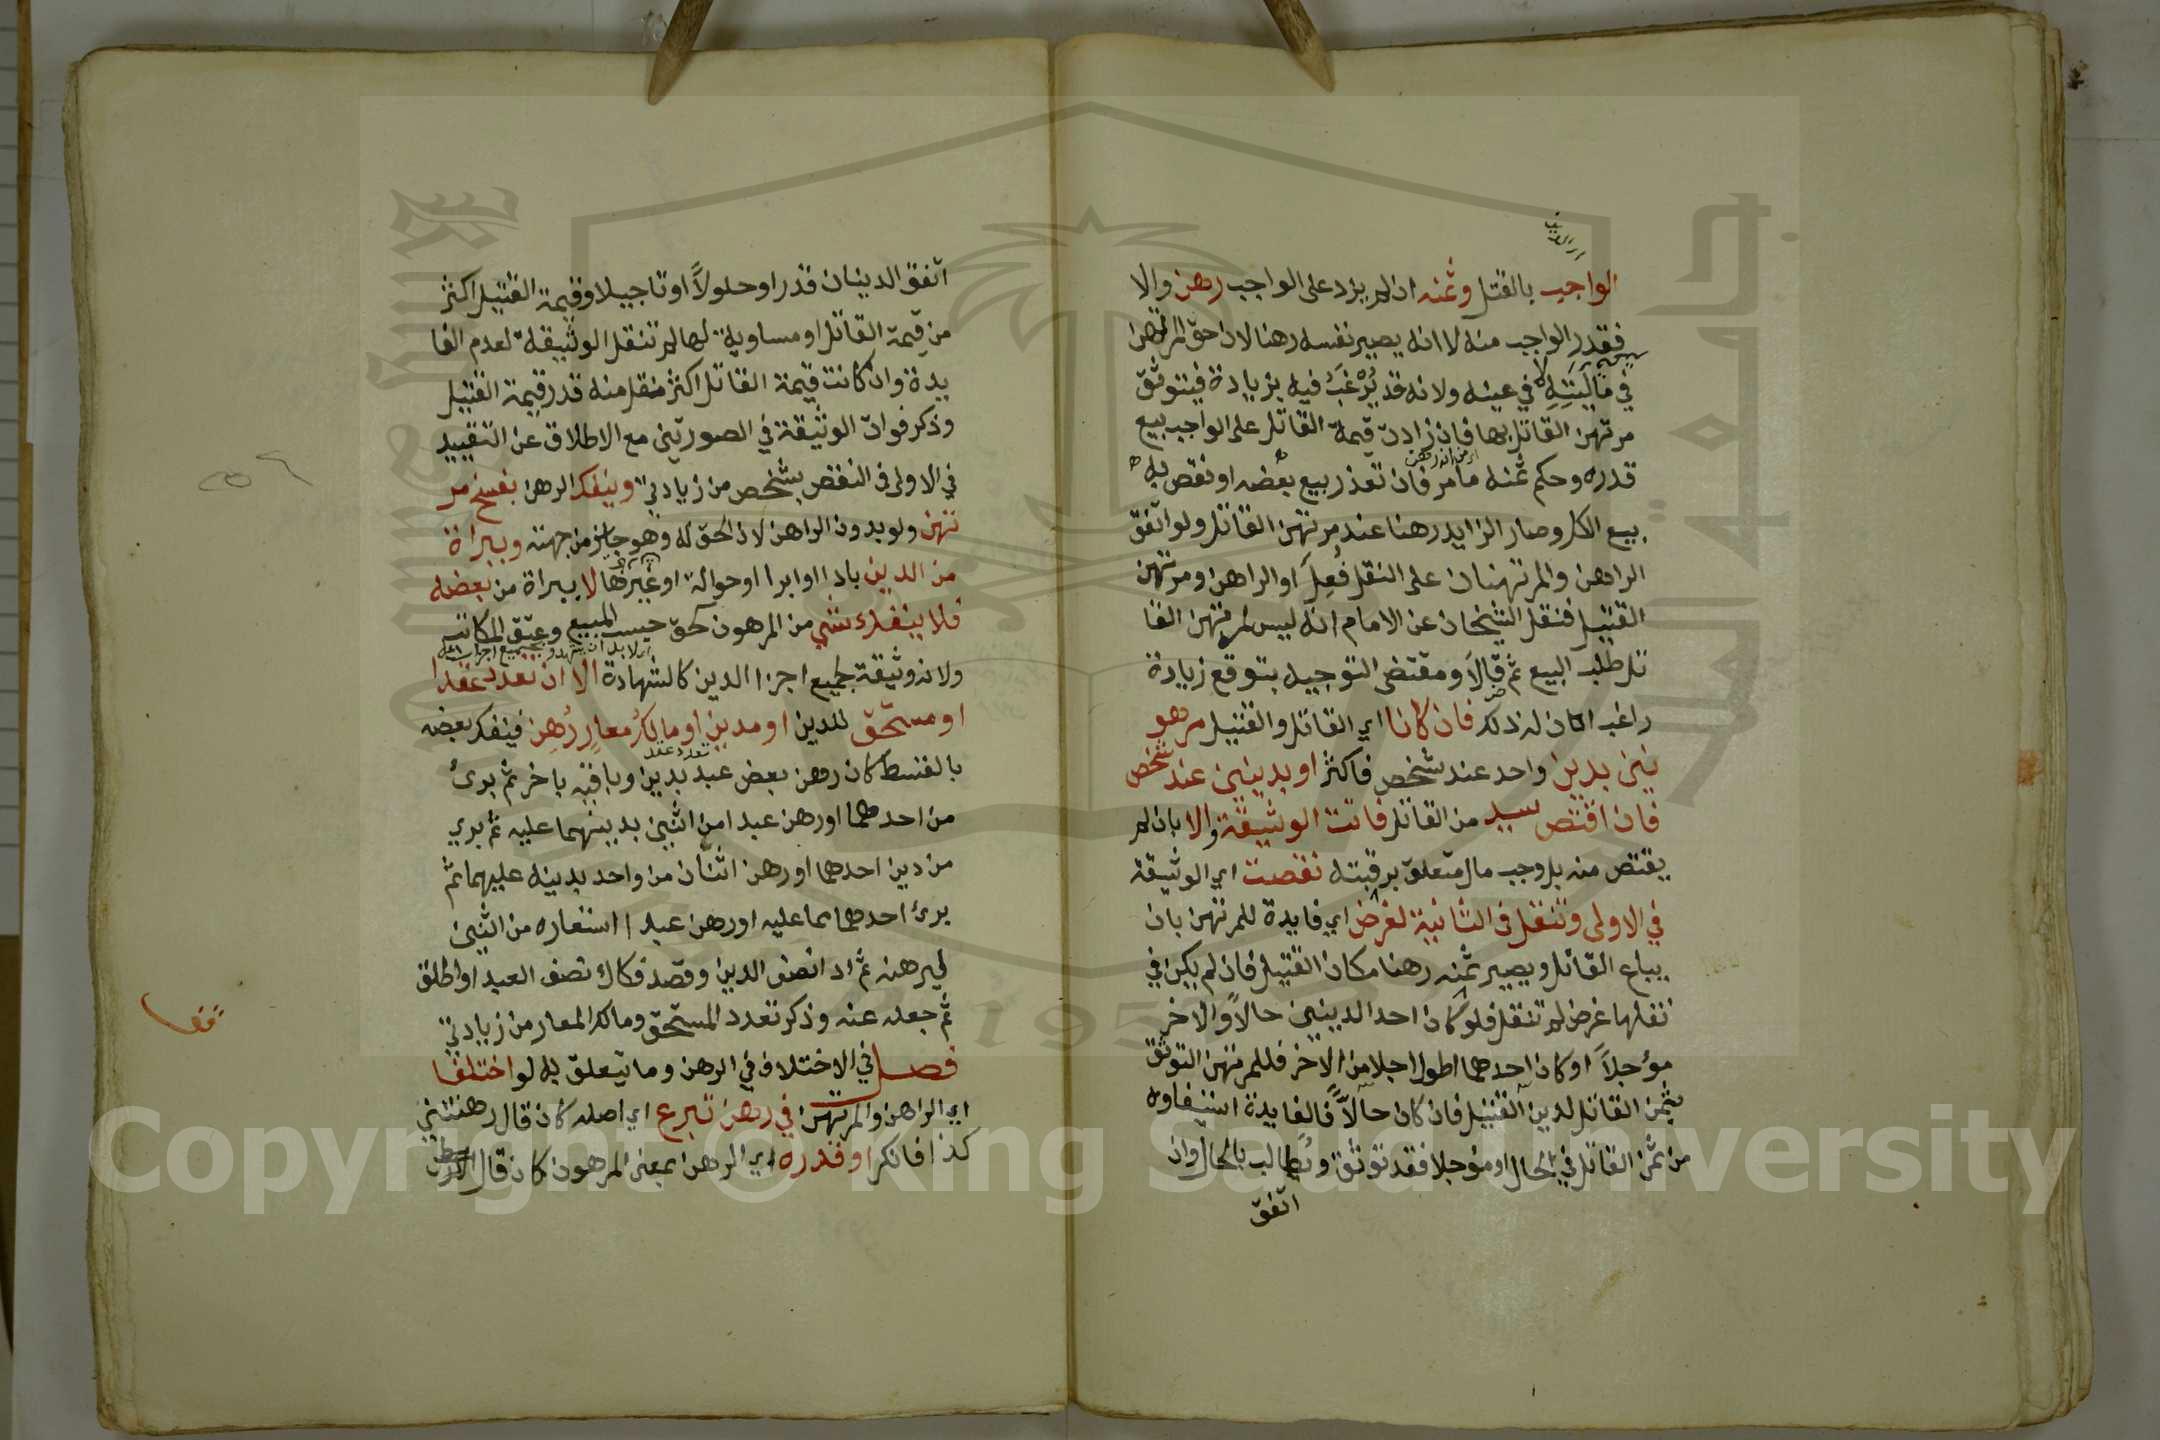 الواجب بالقتل وثمنه ان لم يزد على الواجب رهن والا
فقدر الواجب منه لا انه يصير نفسه رهنا لان حق المرتهن
في ماليته لا في عينه ولانه قد يرغب فيه بزيادة فيتوثق
مرتهن القاتل بها فان زادت قيمة القاتل على الواجب بيع
قدره وحكم ثمنه ما مر فان تعذر بيع بعضه او نقص به
بيع الكل وصار الزايد رهنا عند مرتهن القاتل ولو اتفق
الراهن والمرتهنان على النقل فعل او الراهن ومرتهن
القتيل فنقل الشيخان عن الامام انه ليس لمرتهن القا
تل طلب البيع ثم قالا ومقتضى التوجيه بتوقع زيادة
راغب ان له ذلك فان كانا اي القاتل والقتيل مرهو
نين بدين واحد عند شخص فاكثر او بدينين عند شخص
فان اقتص سيد من القاتل فاتت الوثيقة والا بان لم
يقتص منه بل وجب مال متعلق برقبته نقصت اي الوثيقة
في الاولى وتنقل في الثانية لغرض اي فايدة للمرتهن بان
يباع القاتل ويصير ثمنه رهنا مكان القتيل فان لم يكن في
نقلها غرض لم تنقل فلو كان احد الدينين حالا والاخر
مؤجلا او كان احدهما اطول اجلا من الاخر فللمرتهن التوثق
بثمن القاتل لدين القتيل فان كان حالا فالفايدة استيفاوه
من ثمن القاتل في الحال او مؤجلا فقد توثق ويطالب بالحال وان
اتفق
اتفق الدينان قدرا وحلولا او تاجيلا وقيمة القتيل اكثر
من قيمة القاتل او مساوية لها لم تنقل الوثيقة لعدم الفا
يدة وان كانت قيمة القاتل اكثر نقل منه قدر قيمة القتيل
وذكر فوات الوثيقة في الصورتين مع الاطلاق عن التقييد
في الاولى في النقص بشخص من زيادتي وينفك الرهن بفسخ مر
تهن ولو بدون الراهن لان الحق له وهو جايز من جهته وببراة
من الدين بادا او ابرا او حوالة او غيرها لا ببراة من بعضه
فلا ينفك شي من المرهون كحق حبس المبيع وعتق المكاتب
ولانه وثيقة لجميع اجزا الدين كالشهادة الا ان تعدد عقد
او مستحق للدين او مدين او مالك معار رهن فينفك بعضه
بالقسط كان رهن بعض عبد بدين وباقيه باخر ثم برئ
تعدد عقد
من احدهما او رهن عبدا من اثنين بدينهما عليه ثم بري
من دين احدهما او رهن اثنان من واحد بدينه عليهما ثم
برئ احدهما مما عليه او رهن عبدا استعاره من اثنين
ليرهنه ثم ادا نصف الدين وقصد فكاك نصف العبد او اطلق
ثم جعله عنه وذكر تعدد المستحق ومالك المعار من زيادتي
فصل في الاختلاف في الرهن وما يتعلق به لو اختلفا
اي الراهن والمرتهن في رهن تبرع اي اصله كان قال رهنتني
كذا فانكر او قدره اي الرهن بمعنى المرهون كان قال